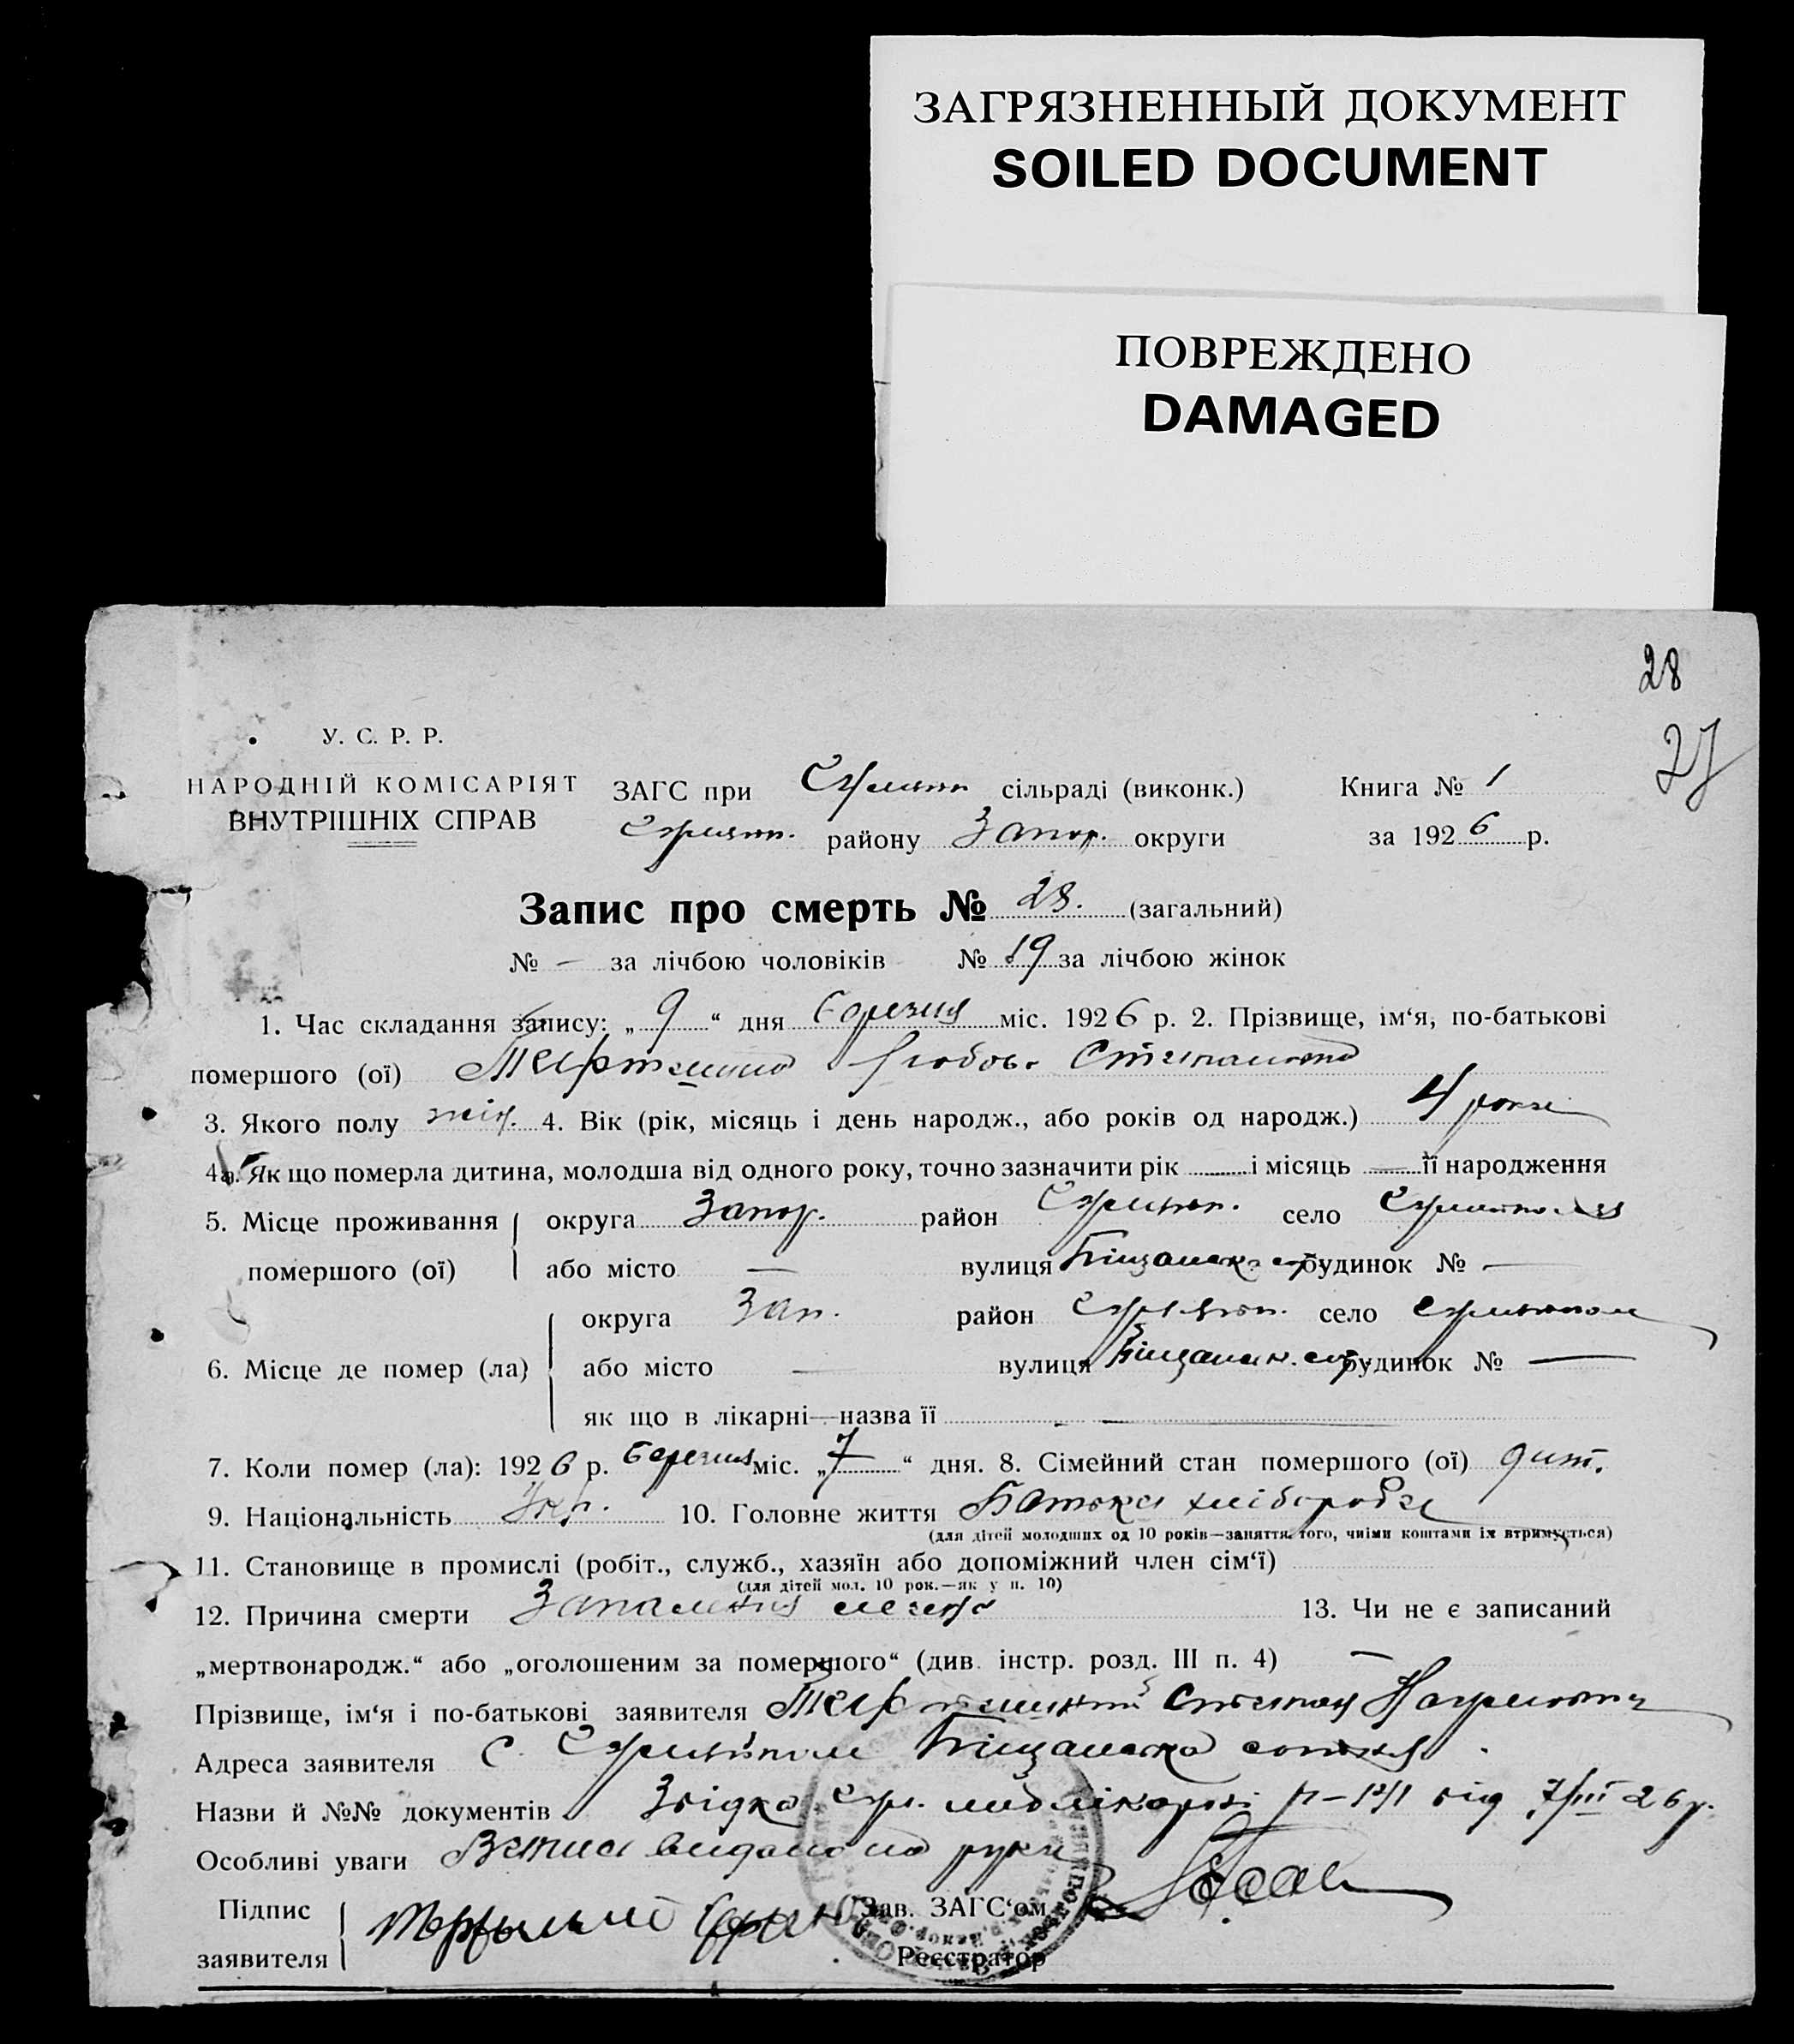 ЗАГРЯЗНЕННЫЙ ДОКУМЕНТ
SOILED DOCUMENT
ПОВРЕЖДЕНО
DAMAGED
28
27
У. С. Р. Р.
НАРОДНІЙ КОМІСАРІЯТ
ВНУТРІШНІХ СПРАВ
ЗАГС при сільраді (виконк.) Книга № 1
району Запор. округи за 1926 р.
Запис про смерть № 28. (загальний)
№ — за лічбою чоловіків № 19 за лічбою жінок
1. Час складання запису: „9“ дня березня міс. 1926 р. 2. Прізвище, ім‘я, по-батькові
помершого (ої) Любовь Степановна
3. Якого полу жін. 4. Вік (рік, місяць і день народж., або років од народж.) 4 роки
4а. Як що померла дитина, молодша від одного року, точно зазначити рік і місяць — її народження
5. Місце проживання округа Запор. район село
помершого (ої) або місто — вулиця будинок № —
округа Зап. район село
6. Місце де помер (ла) або місто — вулиця будинок № —
як що в лікарні—назва її
7. Коли помер (ла): 1926 р. березня міс. „7“ дня. 8. Сімейний стан помершого (ої) дит.
9. Національність Укр. 10. Головне життя Батьки хлібороби
(для дітей молодших од 10 років—заняття того, чиїми коштами їх втримується)
11. Становище в промислі (робіт., служб., хазяїн або допоміжний член сім‘ї)
(для дітей мол. 10 рок.—як у п. 10)
12. Причина смерти Запалення 13. Чи не є записаний
„мертвонародж.“ або „оголошеним за помершого“ (див. інстр. розд. III п. 4) —
Прізвище, ім‘я і по-батькові заявителя Степан Наумович
Адреса заявителя с. Піщанська сотня
Назви й №№ документів від 7/III 26 р.
Особливі уваги видано на руки
Підпис
заявителя
Зав. ЗАГС‘ом
Реєстратор